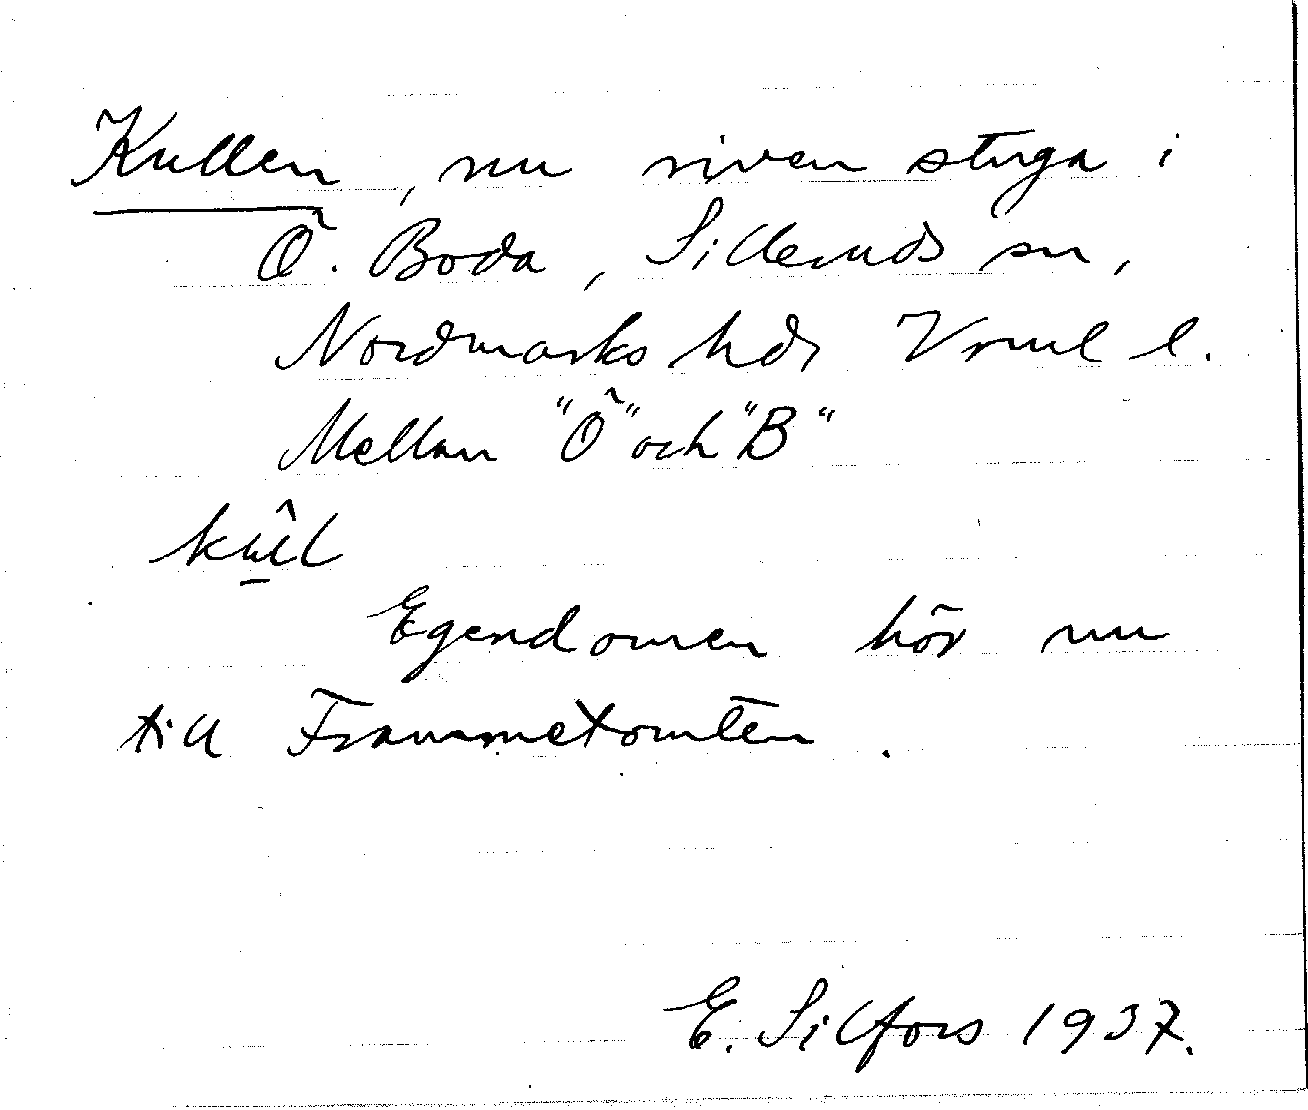 Kullen, nu riven stuga i
Ö. Boda, Silleruds sn,
Nordmarks hds Vrml l.
Mellan "Ö" och "B"
Egendomen hör nu
till Frammetomten.
E. Silfors 1937.